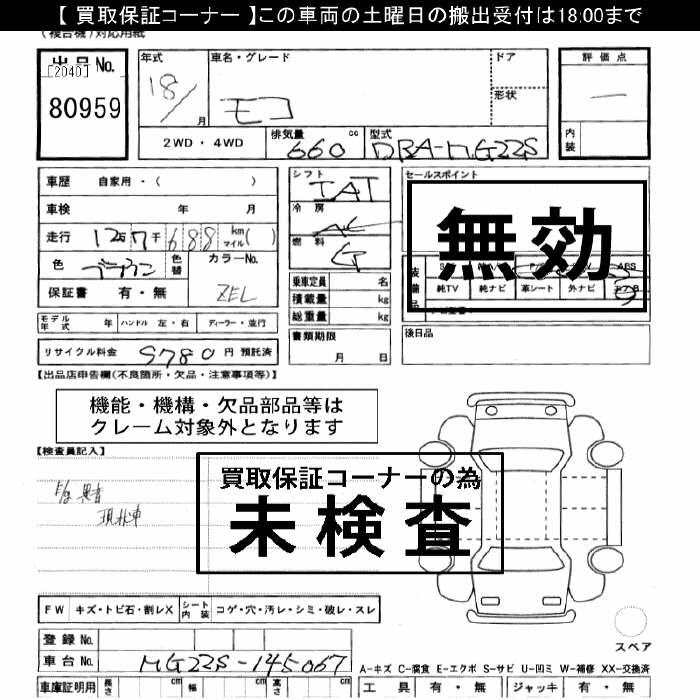 【 買取保証コーナー 】この車両の土曜日の搬出受付は18:00まで
(複合機)対応用紙
出品No.
[2040]
80959
年式
18/
月
車名・グレード
モコ
ドア
形状
評価点
―
内装
2WD・4WD
排気量
660
cc
型式
DBA-MG22S
車歴 自家用・( )
車検 年 月
走行 127千688 km マイル( )
色 ブラウン 色替 カラーNo.
保証書 有・無 ZEL
シフト
IAT
冷房
AC
燃料
G
乗車定員 名
積載量 kg
総重量 kg
書類期限
月 日
セールスポイント
無効
装備品
ABS
純TV 純ナビ 革シート 外ナビ エアB
後日品
モデル年式 年 ハンドル 左・右 ディーラー・並行
リサイクル料金 9780 円 預託済
【出品店申告欄(不良箇所・欠品・注意事項等)】
機能・機構・欠品部品等は
クレーム対象外となります
【検査員記入】
現状車
買取保証コーナーの為
未検査
FW キズ・トビ石・割レX シート内装 コゲ・穴・汚レ・シミ・破レ・スレ
スペア
登録No.
車台No. MG22S-145067
A-キズ C-腐食 E-エクボ S-サビ U-凹ミ W-補修 XX-交換済
車庫証明用 長さ cm 幅 cm 高さ cm
工具 有・無 ジャッキ 有・無